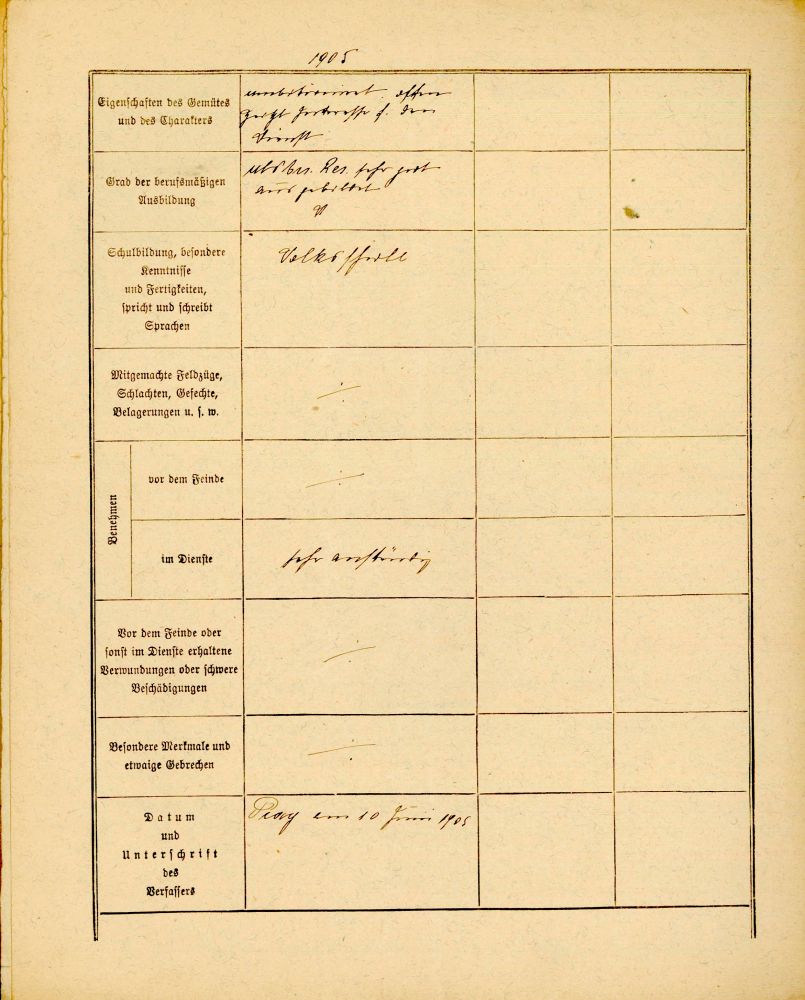 1905
Eigenschaften des Gemütes
und des Charakters
offen
zeigt Interesse f. den
Dienst
Grad der berufsmäßigen
Ausbildung
Res. sehr gut
ausgebildet
Schulbildung, besondere
Kenntnisse
und Fertigkeiten,
spricht und schreibt
Sprachen
Volksschule
Mitgemachte Feldzüge,
Schlachten, Gefechte,
Belagerungen u. s. w.
Benehmen
vor dem Feinde
im Dienste
sehr anständig
Vor dem Feinde oder
sonst im Dienste erhaltene
Verwundungen oder schwere
Beschädigungen
Besondere Merkmale und
etwaige Gebrechen
Datum
und
Unterschrift
des
Verfassers
Prag am 10 Juni 1905